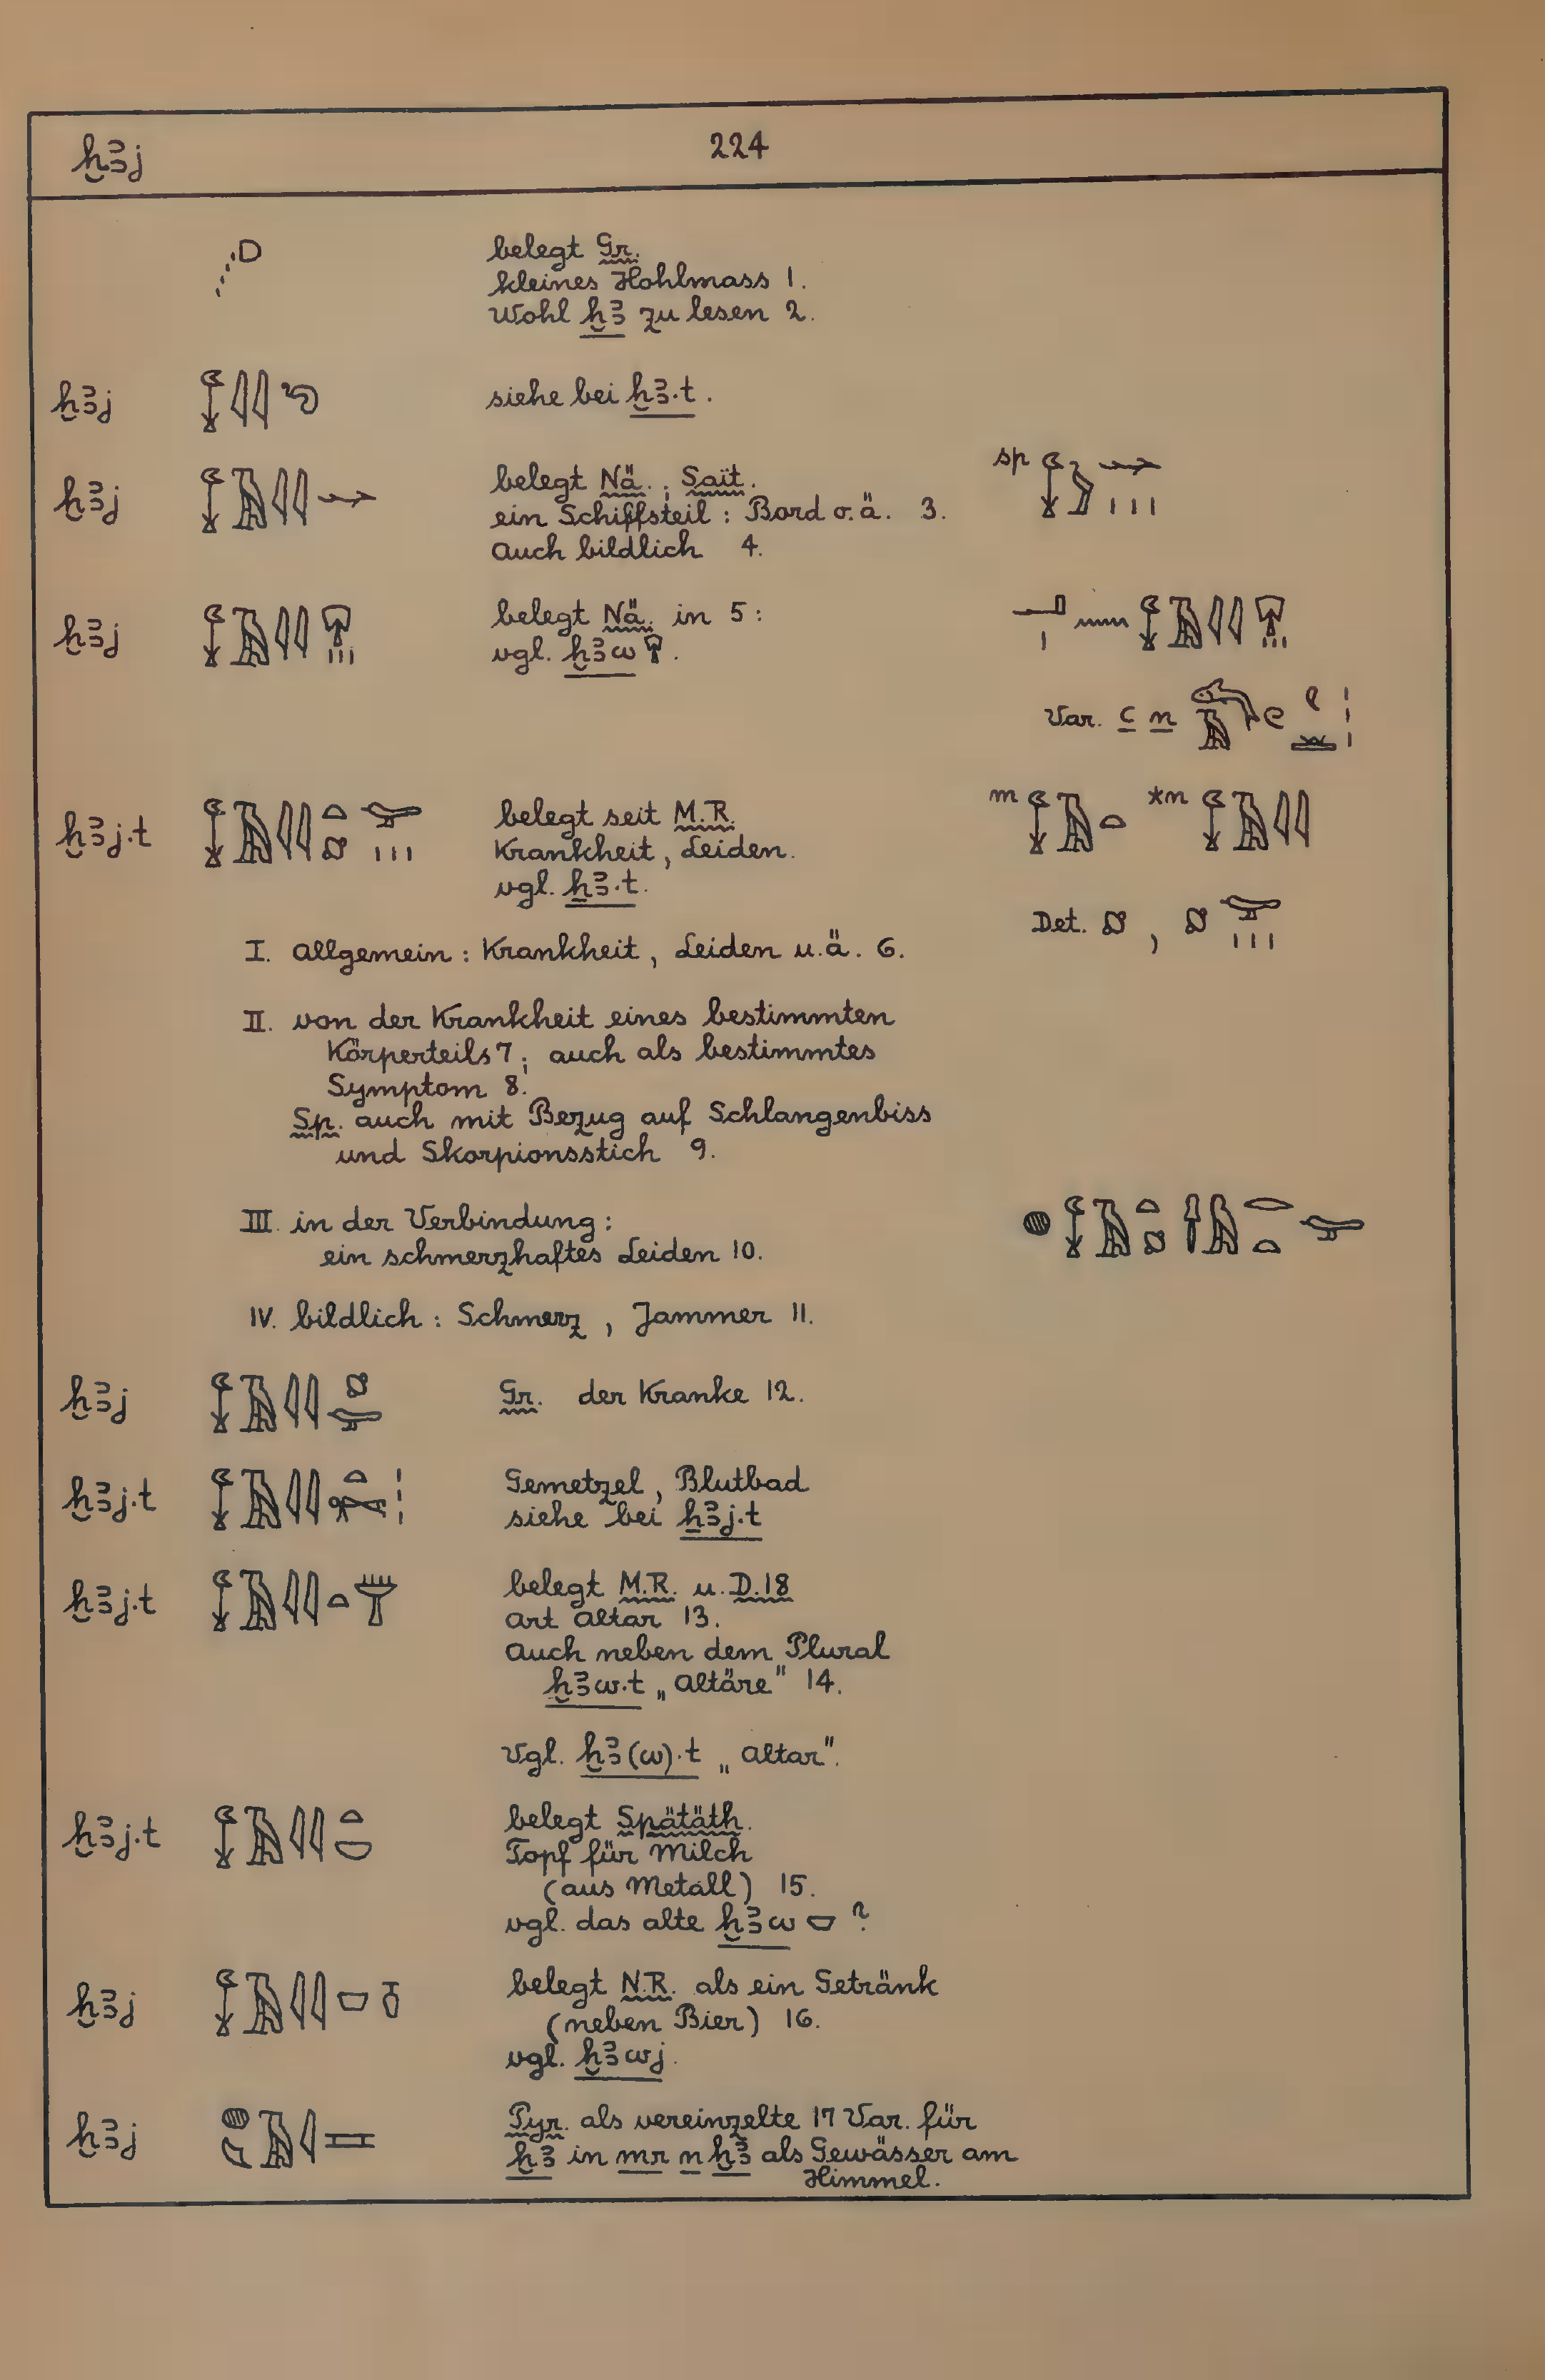 ḫꜣj 224
belegt Gr.
kleines Hohlmass 1.
Wohl ḫꜣ zu lesen 2.
ḫꜣj siehe bei ḫꜣ.t.
ḫꜣj belegt Nä.; Sait. sp
ein Schiffsteil: Bord o.ä. 3.
auch bildlich 4.
ḫꜣj belegt Nä. in 5:
vgl. ḫꜣw.
Var. c n
ḫꜣj.t belegt seit M.R. m *m
Krankheit, Leiden.
vgl. ẖꜣ.t.
Det. ,
I. allgemein: Krankheit, Leiden u.ä. 6.
II. von der Krankheit eines bestimmten
Körperteils 7; auch als bestimmtes
Symptom 8.
Sp. auch mit Bezug auf Schlangenbiss
und Skorpionsstich 9.
III. in der Verbindung:
ein schmerzhaftes Leiden 10.
IV. bildlich: Schmerz, Jammer 11.
ḫꜣj Gr. der Kranke 12.
ḫꜣj.t Gemetzel, Blutbad
siehe bei ẖꜣj.t
ḫꜣj.t belegt M.R. u. D.18
art altar 13.
auch neben dem Plural
ḫꜣw.t „altäre" 14.
Vgl. ḫꜣ(w).t „altar".
ḫꜣj.t belegt Spätäth.
Topf für Milch
(aus Metall) 15.
vgl. das alte ḫꜣw ?
ḫꜣj belegt N.R. als ein Getränk
(neben Bier) 16.
vgl. ḫꜣwj.
ḫꜣj Pyr. als vereinzelte 17 Var. für
ḫꜣ in mr n ḫꜣ als Gewässer am
Himmel.